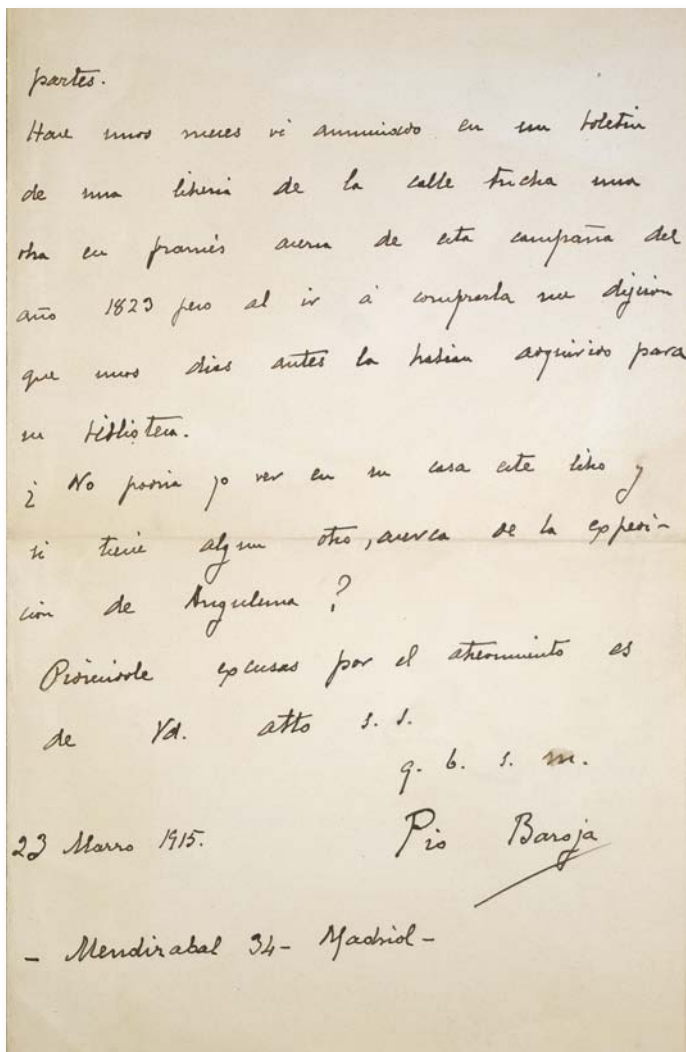 partes.
Hace unos meses vi anunciado en un boletin
de una libreria de la calle una
obra en francés acerca de esta campaña del
año 1823 pero al ir á comprarla me dijeron
que unos dias antes la habian adquirido para
su biblioteca.
¿ No podria yo ver en su casa este libro y
si tiene algun otro, acerca de la expedi-
cion de Angulema ?
Pidiendole excusas por el atrevimiento es
de Vd. atto s. s.
q. b. s. m.
23 Marzo 1915. Pio Baroja
- Mendizabal 34 - Madrid -